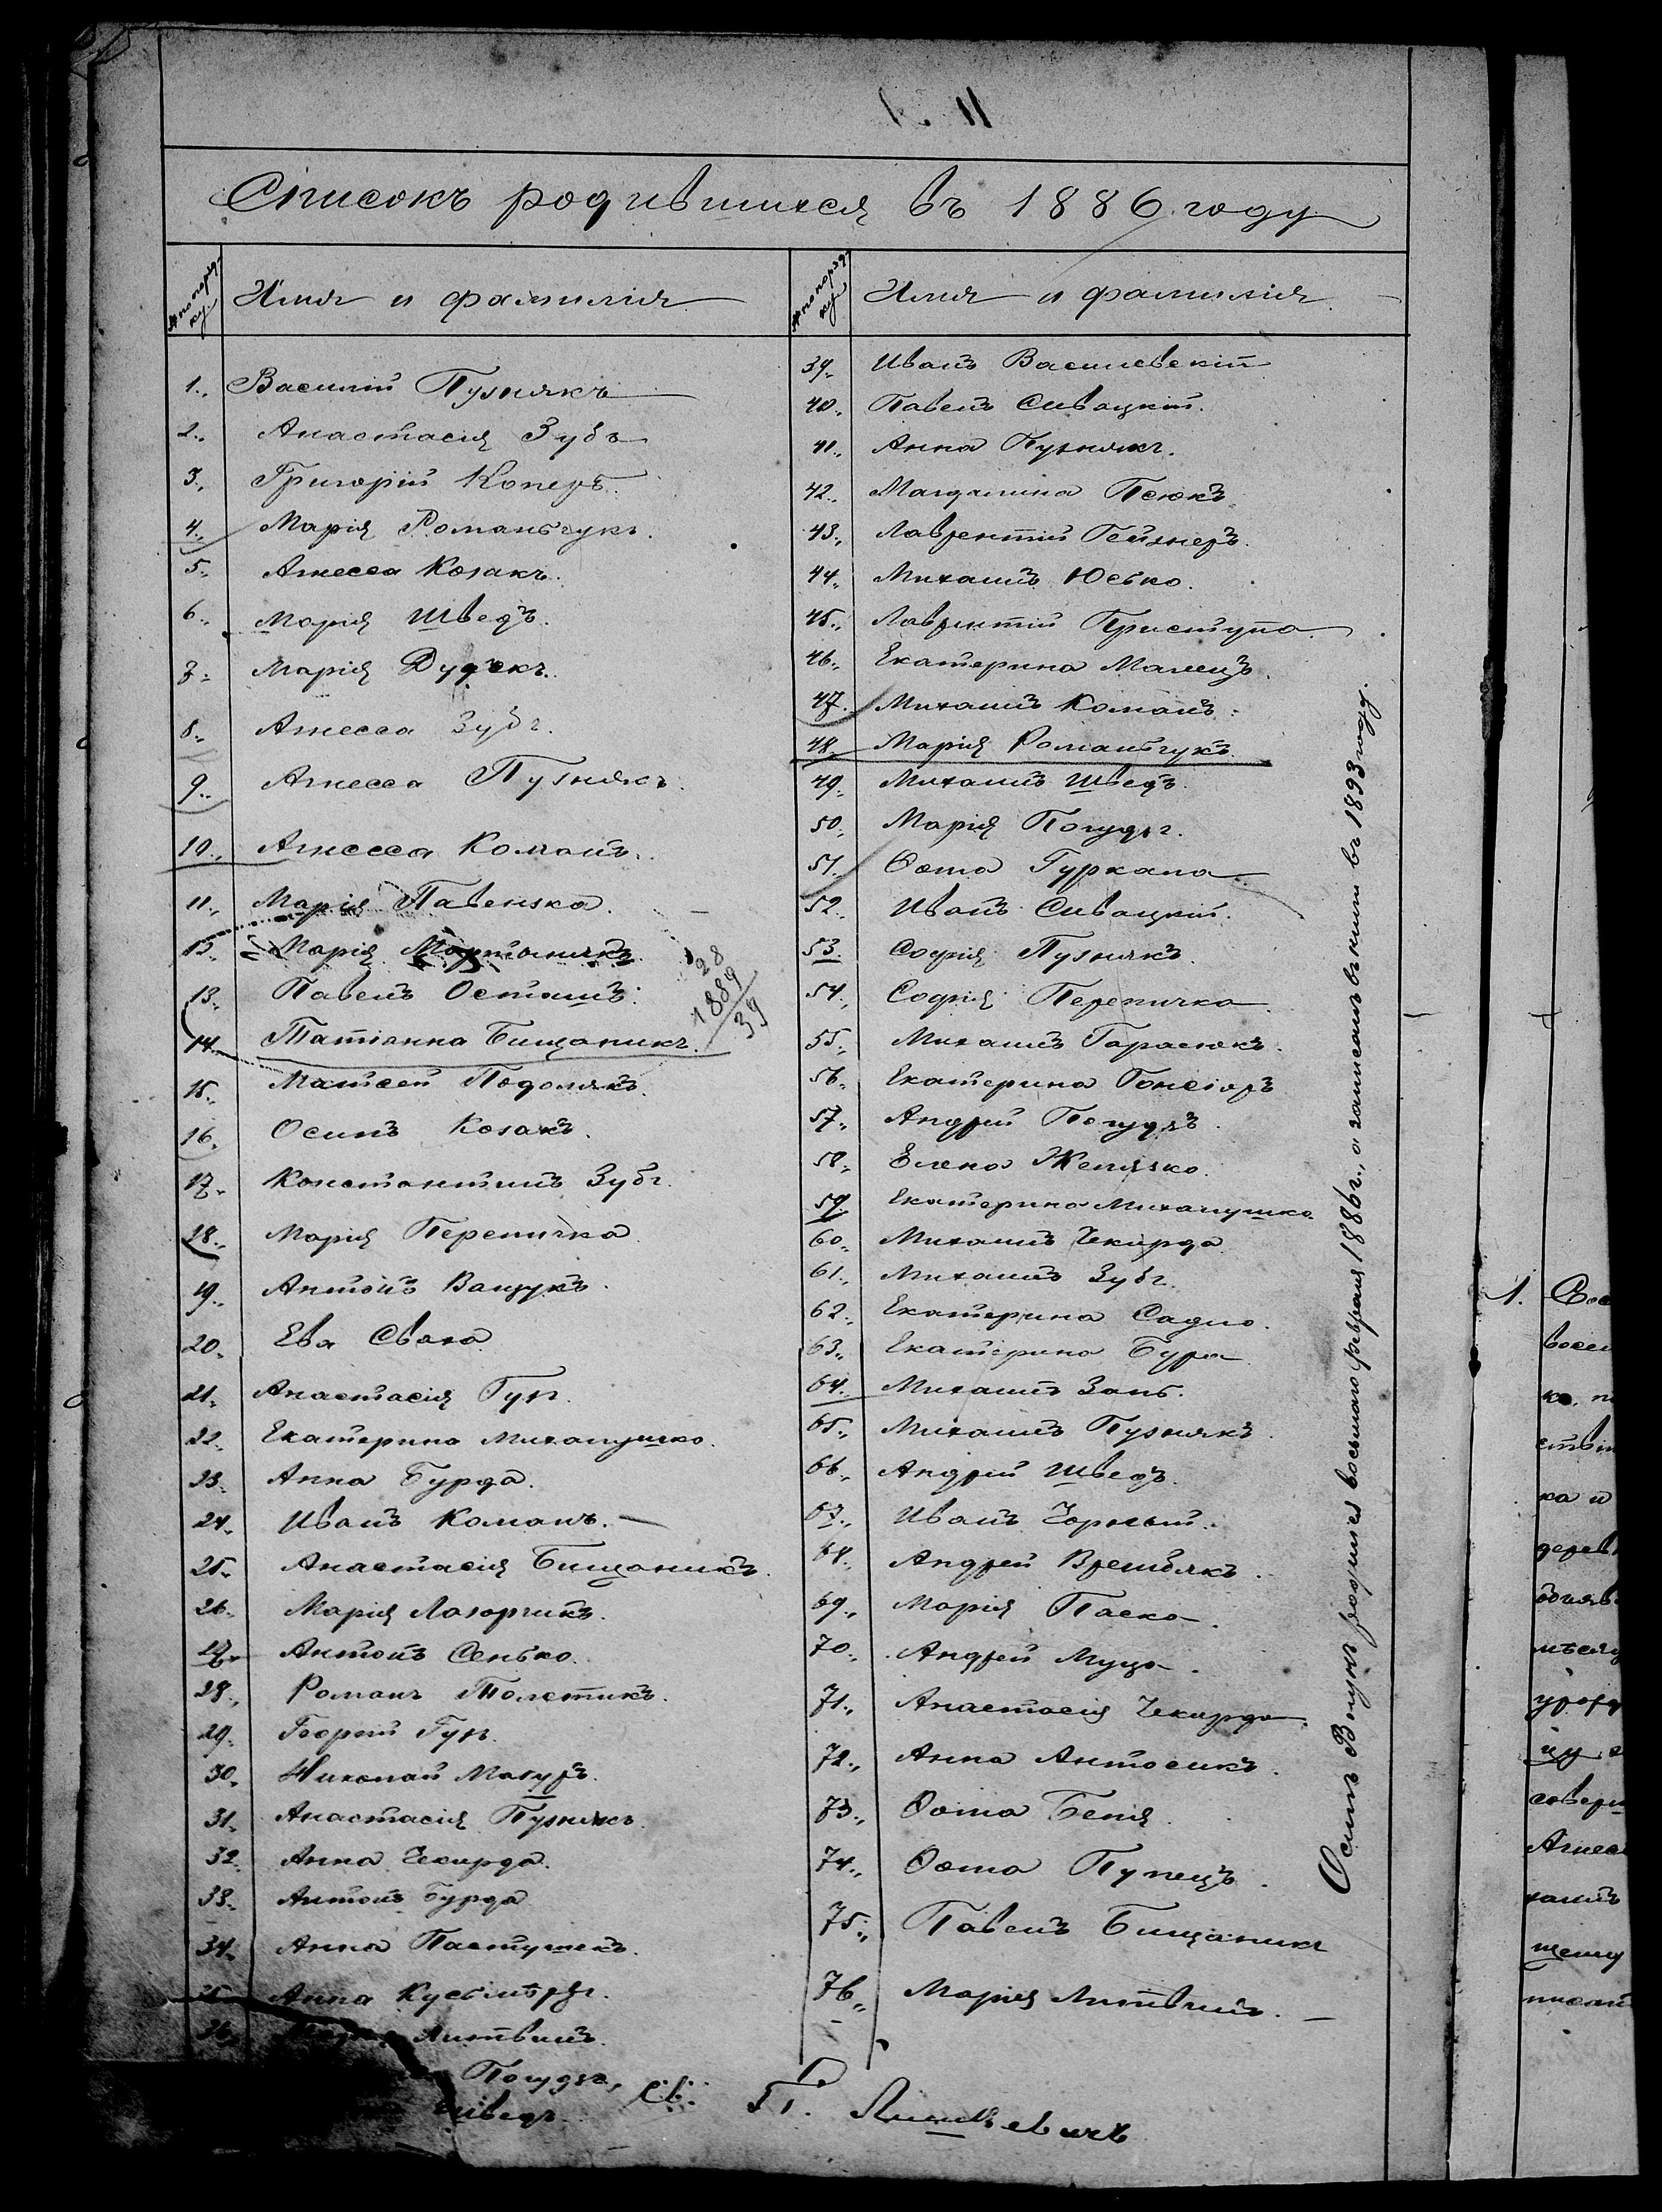 Списокъ родившихся въ 1886 году
№ по порядку
Имя и фамилія
1. Василій Пузнякъ
2. Анастасія Зубъ
3. Григорій Коперъ
4. Марія Романьчукъ.
5. Агнесса Козакъ.
6. Марія Шведъ.
7. Марія Дудекъ.
8. Агнесса Зубъ.
9. Агнесса Пузнякъ.
10. Агнесса Команъ.
11. Марія Павензка.
12. Марія Мартынякъ.
13. Павелъ Осташъ.
14. Татіанна Бищаникъ.
28
1889
39
15. Матѳей Подолякъ.
16. Осипъ Козакъ.
17. Константинъ Зубъ.
18. Марія Перепичка
19. Антонъ Ващукъ.
20. Ева Свата
21. Анастасія Гуп.
22. Екатерина Михалушко.
23. Анна Бурда.
24. Иванъ Команъ.
25. Анастасія Бищаникъ.
26. Марія Лазорчикъ.
27. Антонъ Сенько.
28. Романъ Толстикъ.
29. Георгій Гуп.
30. Николай Мазуръ.
31. Анастасія Пузнякъ.
32. Анна Чекирда.
33. Антонъ Бурда
34. Анна Пастушекъ.
35. Анна
36. Литвинъ.
Погудзъ,
Шведъ.
№ по порядку
Имя и фамилія.
39. Иванъ Василевскій
40. Павелъ Сивацкій.
41. Анна Пузнякъ.
42. Магдалина Псюкъ
43. Лаврентій Гейзнеръ.
44. Михаилъ Юсько.
45. Лаврентій Приступа.
46. Екатерина Малецъ.
47. Михаилъ Команъ.
48. Марія Романьчукъ.
49. Михаилъ Шведъ.
50. Марія Погудзъ.
51. Ѳома Гуркала.
52. Иванъ Сивацкій.
53. Софія Пузнякъ.
54. Софія Перепичка
55. Михаилъ Гарасюкъ.
56. Екатерина Гонсіоръ
57. Андрей Погудзъ.
58. Елена Желязко.
59. Екатерина Михалушко.
60. Михаилъ Чекирда
61. Михаилъ Зубъ.
62. Екатерина Садло.
63. Екатерина Бура
64. Михаилъ Зань.
65. Михаилъ Пузнякъ.
66. Андрей Шведъ.
67. Иванъ Чорный.
68. Андрей
69. Марія Паска.
70. Андрей Муца.
71. Анастасія Чекирда.
72. Анна Антосикъ.
73. Ѳома Беня.
74. Ѳома Пупецъ.
75. Павелъ Бищаникъ
76. Марія Литвинъ.
Осипъ Внукъ родился восьмого февраля 1886 г., а записанъ въ книги въ 1893 году.
Св. П.
1.
восем
ка, п
ка и
дерев
мѣсяц
соверш
Агнес